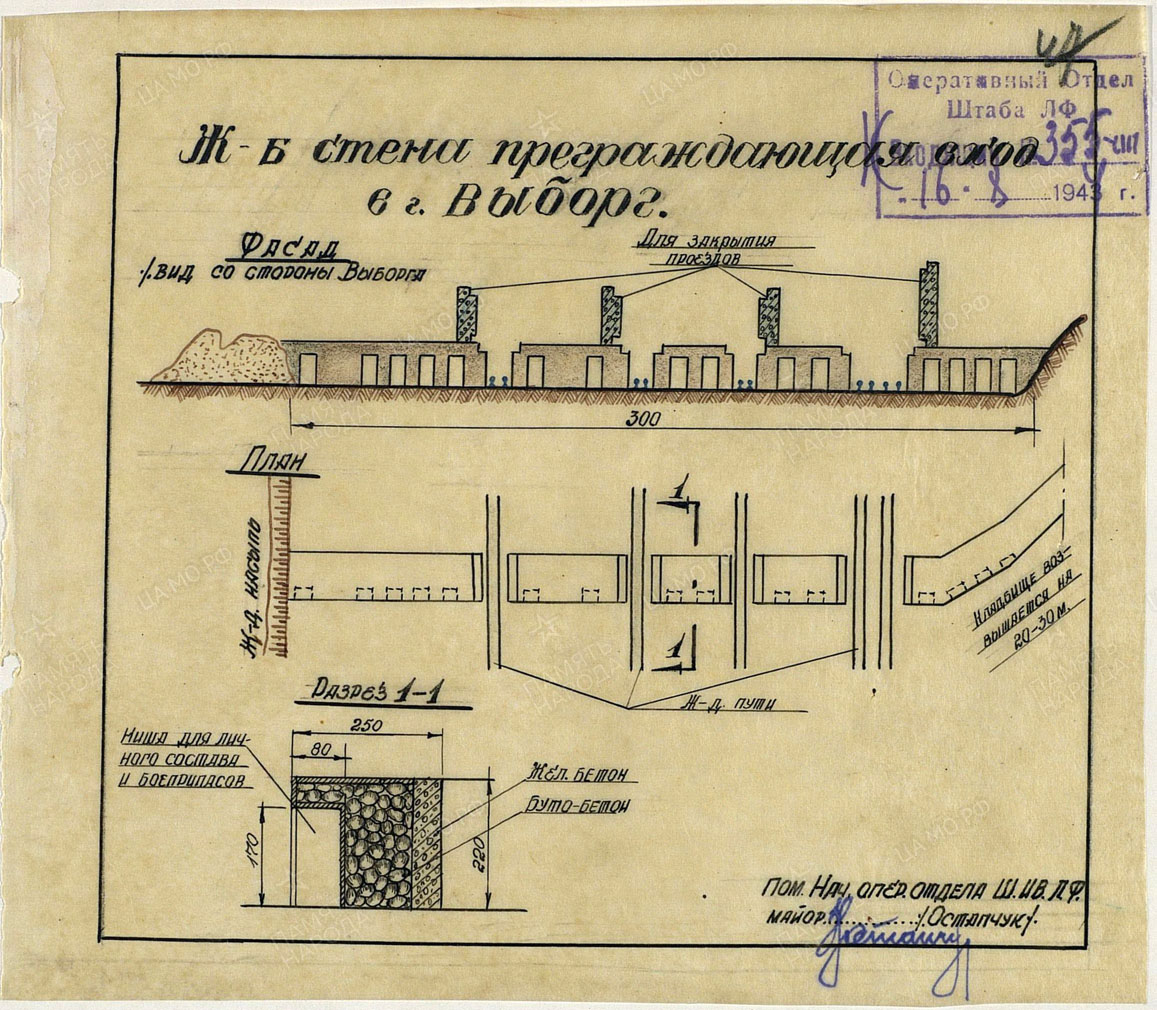 Оперативный Отдел
Штаба ЛФ
355
16. 8 1943 г.
Ж-Б стена преграждающая вход
в г. Выборг.
Фасад
/.вид со стороны Выборга
Для закрытия
проездов
300
План
Ж-д. насыпь
1
1
Кладбище воз-
вышается на
20-30 м.
Ж-д. пути
Разрез 1-1
250
80
Ниша для лич-
ного состава
и боеприпасов
Жел. бетон
Буто-бетон
170
220
Пом. Нач. опер. отдела Ш.ИВ.ЛФ.
майор............/Остапчук/.
ЦАМО.РФ
ПАМЯТЬ
НАРОДА